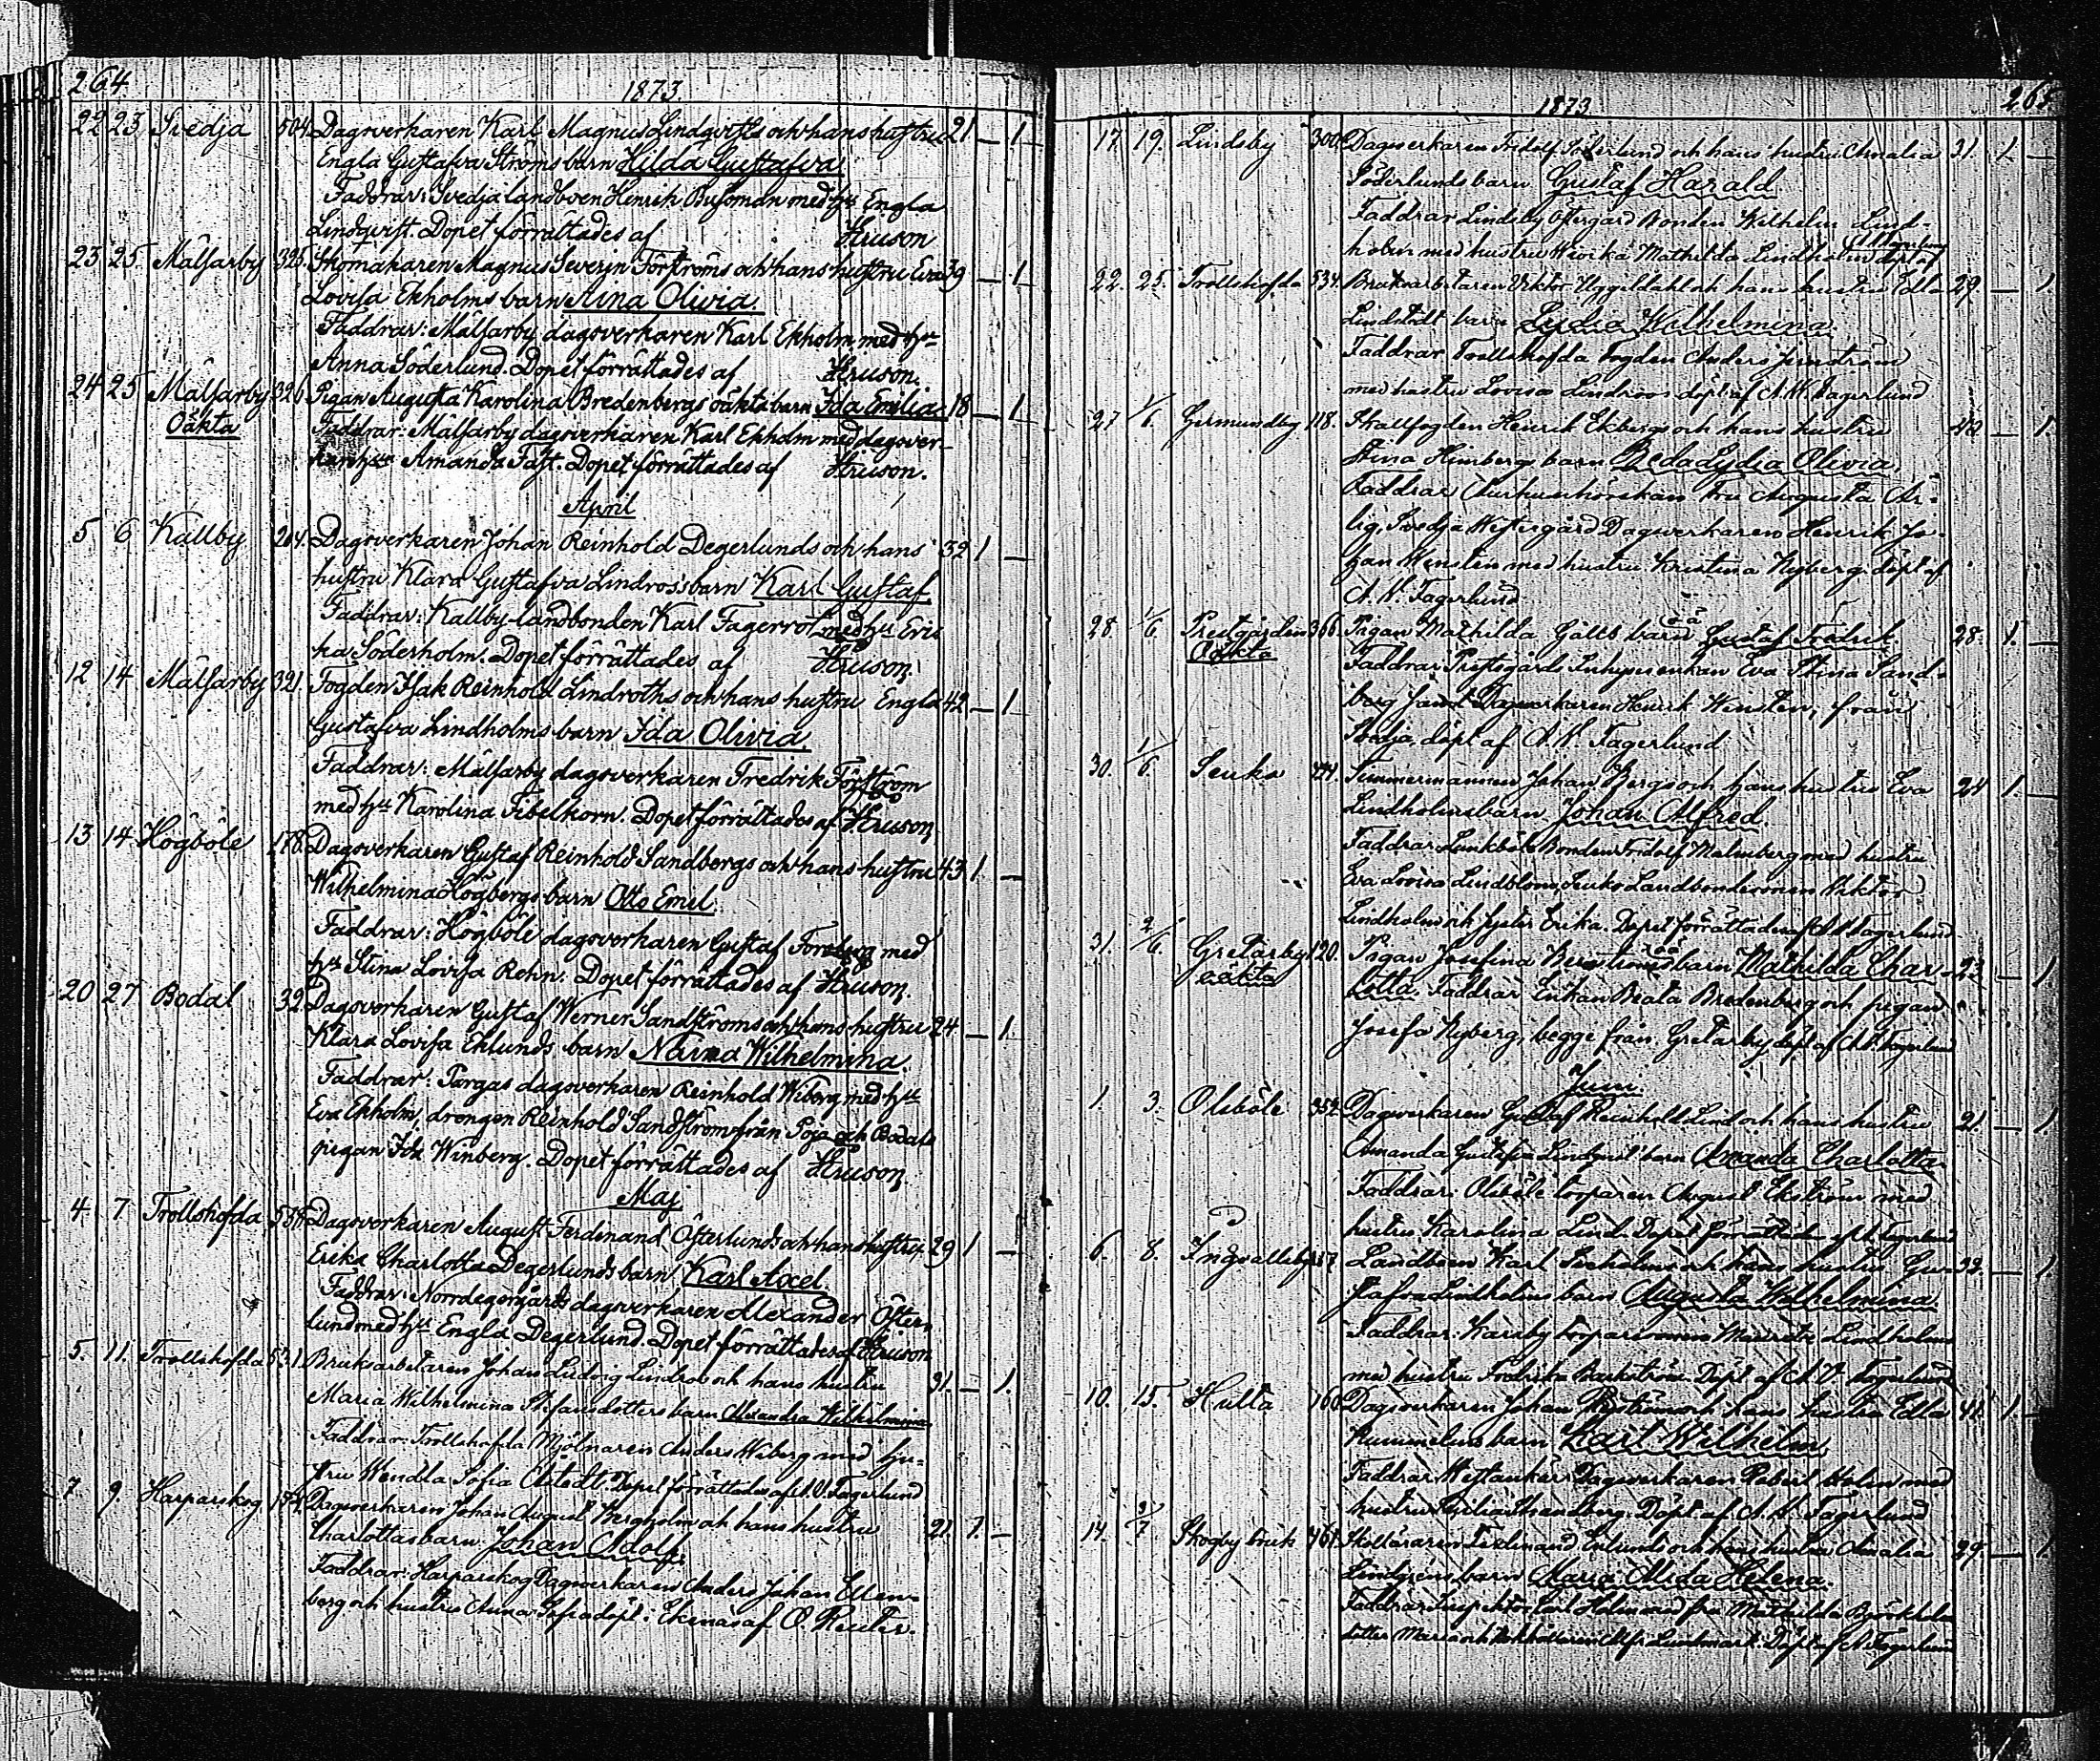 264
1873
22 23 Svedja 504. Dagsverkaren Karl Magnus Lindqvists och hans hustru 21 — 1
Engla Gustafva Ströms barn Hilda Gustafva
Faddrar: Svedja landboen Henrik Busoman med hu Engla
Lindqvist. Dopet förrättades af Hruson
23 25. Målsarby 325. Skomakaren Magnus Severin Förströms och hans hustru Eva 39 — 1
Lovisa Ekholms barn Aina Olivia.
Faddrar: Målsarby dagsverkaren Karl Ekholm med hu
Anna Söderlund. Dopet förrättades af Hruson.
24 25 Målsarby 326 Pigan Augusta Karolina Bredenbergs oäkta barn Ida Emilia 18 — 1
Oäkta Faddrar: Målsarby dagsverkaren Karl Ekholm med dagsver-
Amanda Fast. Dopet förrättades af Hruson.
April
5 6 Källby 204. Dagsverkaren Johan Reinhold Degerlunds och hans 32 1 —
hustru Klara Gustafva Lindroos barn Karl Gustaf
Faddrar: Källby landbonden Karl Fagerro med hu Eri
ka Söderholm. Dopet förrättades af Hruson.
12 14 Målsarby 321. Fogden Isak Reinhold Lindroths och hans hustru Engla 42 — 1
Gustafva Lindholms barn Ida Olivia.
Faddrar: Målsarby dagsverkaren Fredrik Förström
med hu Karolina Fibelkorn. Dopet förrättades af Hruson
13 14 Högböle 178. Dagsverkaren Gustaf Reinhold Sandbergs och hans hustru 43 1 —
Wilhelmina Högbergs barn Otto Emil.
Faddrar: Högböle dagsverkaren Gustaf Forsberg med
hu Stina Lovisa Rehn. Dopet förrättades af Hruson.
20 27 Bodal 32. Dagsverkaren Gustaf Werner Sandströms och hans hustru 24 — 1
Klara Lovisa Eklunds barn Naima Wilhelmina.
Faddrar: Pargas dagsverkaren Reinhold Wiberg med hu
Eva Ekholm, drengen Reinhold Sandström från Pojo och Bodals
pigan Ida Winberg. Dopet förrättades af Hruson
Maj
4 7 Trollshofda Dagsverkaren August Ferdinand Österlunds och hans hustru 29 1 —
Erika Charlotta Degerlunds barn Karl Axel.
Faddrar: Norrdegergårds dagsverkaren Alexander Öster-
lund med hu Engla Degerlund. Dopet förrättades af Hruson
5. 11. Trollshofda 531. Bruksarbetaren Johan Ludvig Lindroos och hans hustru 31. — 1.
Maria Wilhelmina Stefansdotters barn Alexandra Wilhelmina
Faddrar: Trollshofda Mjölnaren Anders Wiberg med hu-
stru Wendla Sofia Åstedt. Dopet förrättades af A. V. Fagerlund
7 9. Harparskog Dagsverkaren Johan August Bergholm och hans hustru 21. 1. —
Charlottas barn Johan Adolf.
Faddrar: Harparskog Dagsverkaren Anders Johan Ekren-
berg och hustru Anna Sofia döpt i Ekenäs af O. Reuter.
265
1873
17. 19. Lindsby 300. Dagsverkaren Fridolf Söderlund och hans hustru Amalia 31. 1. —
Söderlunds barn Gustaf Harald
Faddrar Lindsby Östergård Bonden Wilhelm Lind-
holm med hustru Mathilda Lindholm döpt af
22. 25. Trollshofda 534. Bruksarbetaren Viktor Uggeldahl och hans hustru Edla 29 — 1
Lindstedt barn Lydia Wilhelmina.
Faddrar Trollshofda Fogden Anders Jernström
med hustru Lovisa Lindroos döpt af A. V. Fagerlund
27 1/6. Germundby 118. Stallfogden Henrik Ekbergs och hans hustru — 1.
Stina Himberg barn Beda Lydia Olivia.
Faddrar Fru Augusta Ar-
lig, Svedja Westergård Dagsverkaren Henrik Jo-
han Wensten med hustru Kristina Nyberg döpt af
A. V. Fagerlund
28. 1/6 Prestgården 366. Pigan Mathilda Gälts barn Gustaf Fredrik 28. 1. —
Oäkta Faddrar Prestgårds Inhysesenkan Eva Stina Sand-
berg samt Dagsverkaren Henrik Winsten, från
Svedja, döpt af A. V. Fagerlund
30. 1/6. Seuko Timmermannen Johan Bergs och hans hustru Eva 24 1. —
Lindholms barn Johan Alfred.
Faddrar Lunkböle Bonden Fridolf Malmberg med hustru
Eva Lovisa Lindblom, Seuko Landbondesonen Viktor
Lindholm och Erika. Dopet förrättades af A. V. Fagerlund
31. 2/6. Gretarby 120. Pigan Josefina Bergströms barn Mathilda Char- — 1
oäkta lotta. Faddrar Enkan Beata Bredenberg och pigan
Josefa Nyberg, begge från Gretarby, döpt af A. V. Fagerlund
Juni.
1. 3. Olsböle 352. Dagsverkaren Gustaf Reinhold Lind och hans hustru 21. — 1
Amanda Gustafva Lindqvist barn Amanda Charlotta
Faddrar: Olsböle torparen August Ekström med
hustru Karolina Lind. Dopet förrättades af A. V. Fagerlund
6. 8. Ingvallsby Landboen Karl och hans hustru Gu- — 1.
stafva Lindholms barn Augusta Wilhelmina.
Faddrar: Karsby Mauritz Lindholm
med hustru Fredrika Backström. Döpt af A. V. Fagerlund
10. 15. Hulta 160. Dagsverkaren Johan och hans hustru Edla 41. 1. —
barn Karl Wilhelm.
Faddrar Westankärr Dagsverkaren Robert Holm med
hustru Strandberg. Döpt af A. V. Fagerlund
14. 2/7 Skogby bruk 461. Ferdinand Enlunds och hans hustru Amalia 29. — 1.
Lindgrens barn Maria Alida Helena.
Faddrar Inspektor Carl Holm med fru Mathilda Björkholm
dotter Maria och Bokhållaren Lindmark. Döpt af A. V. Fagerlund